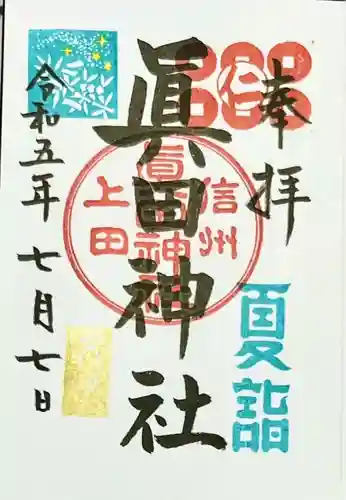 奉拝
夏詣
眞田神社
信州
眞田神社
上田
令和五年七月七日